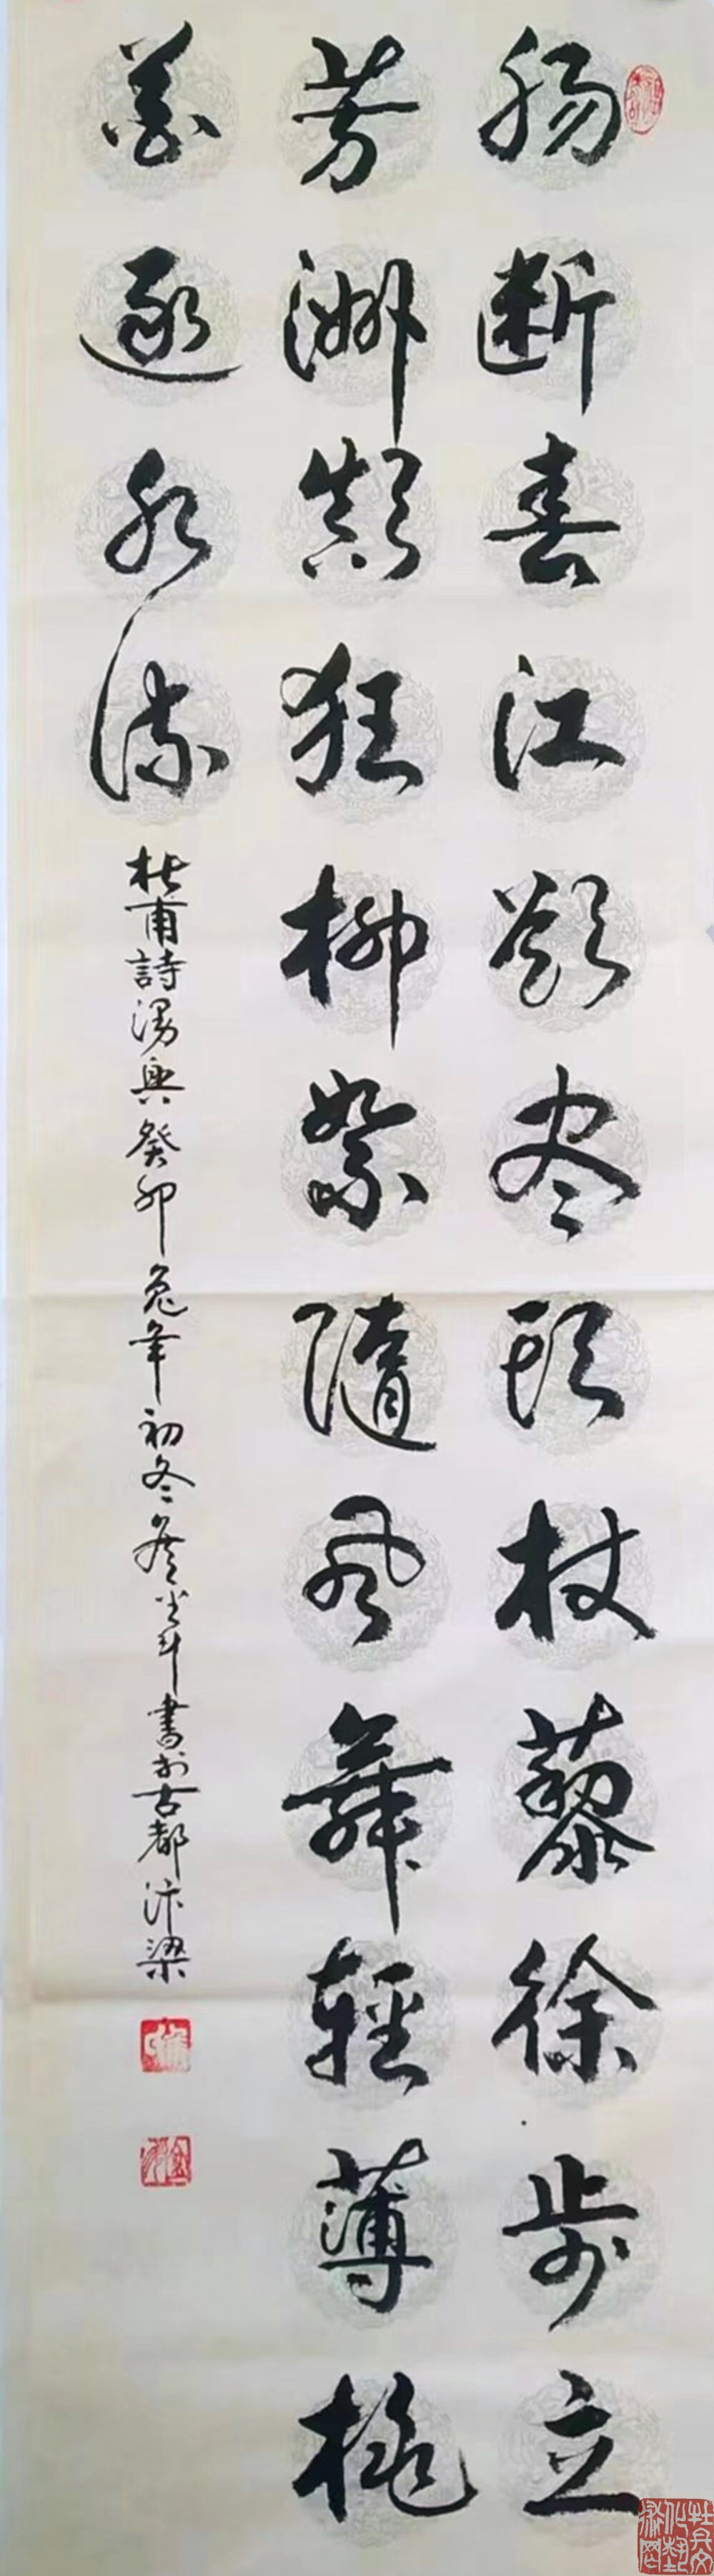 肠断春江欲尽头杖藜徐步立
芳洲颠狂柳絮隨风舞輕薄桃
花逐水流
杜甫詩漫興癸卯兔年初冬書於古都汴梁